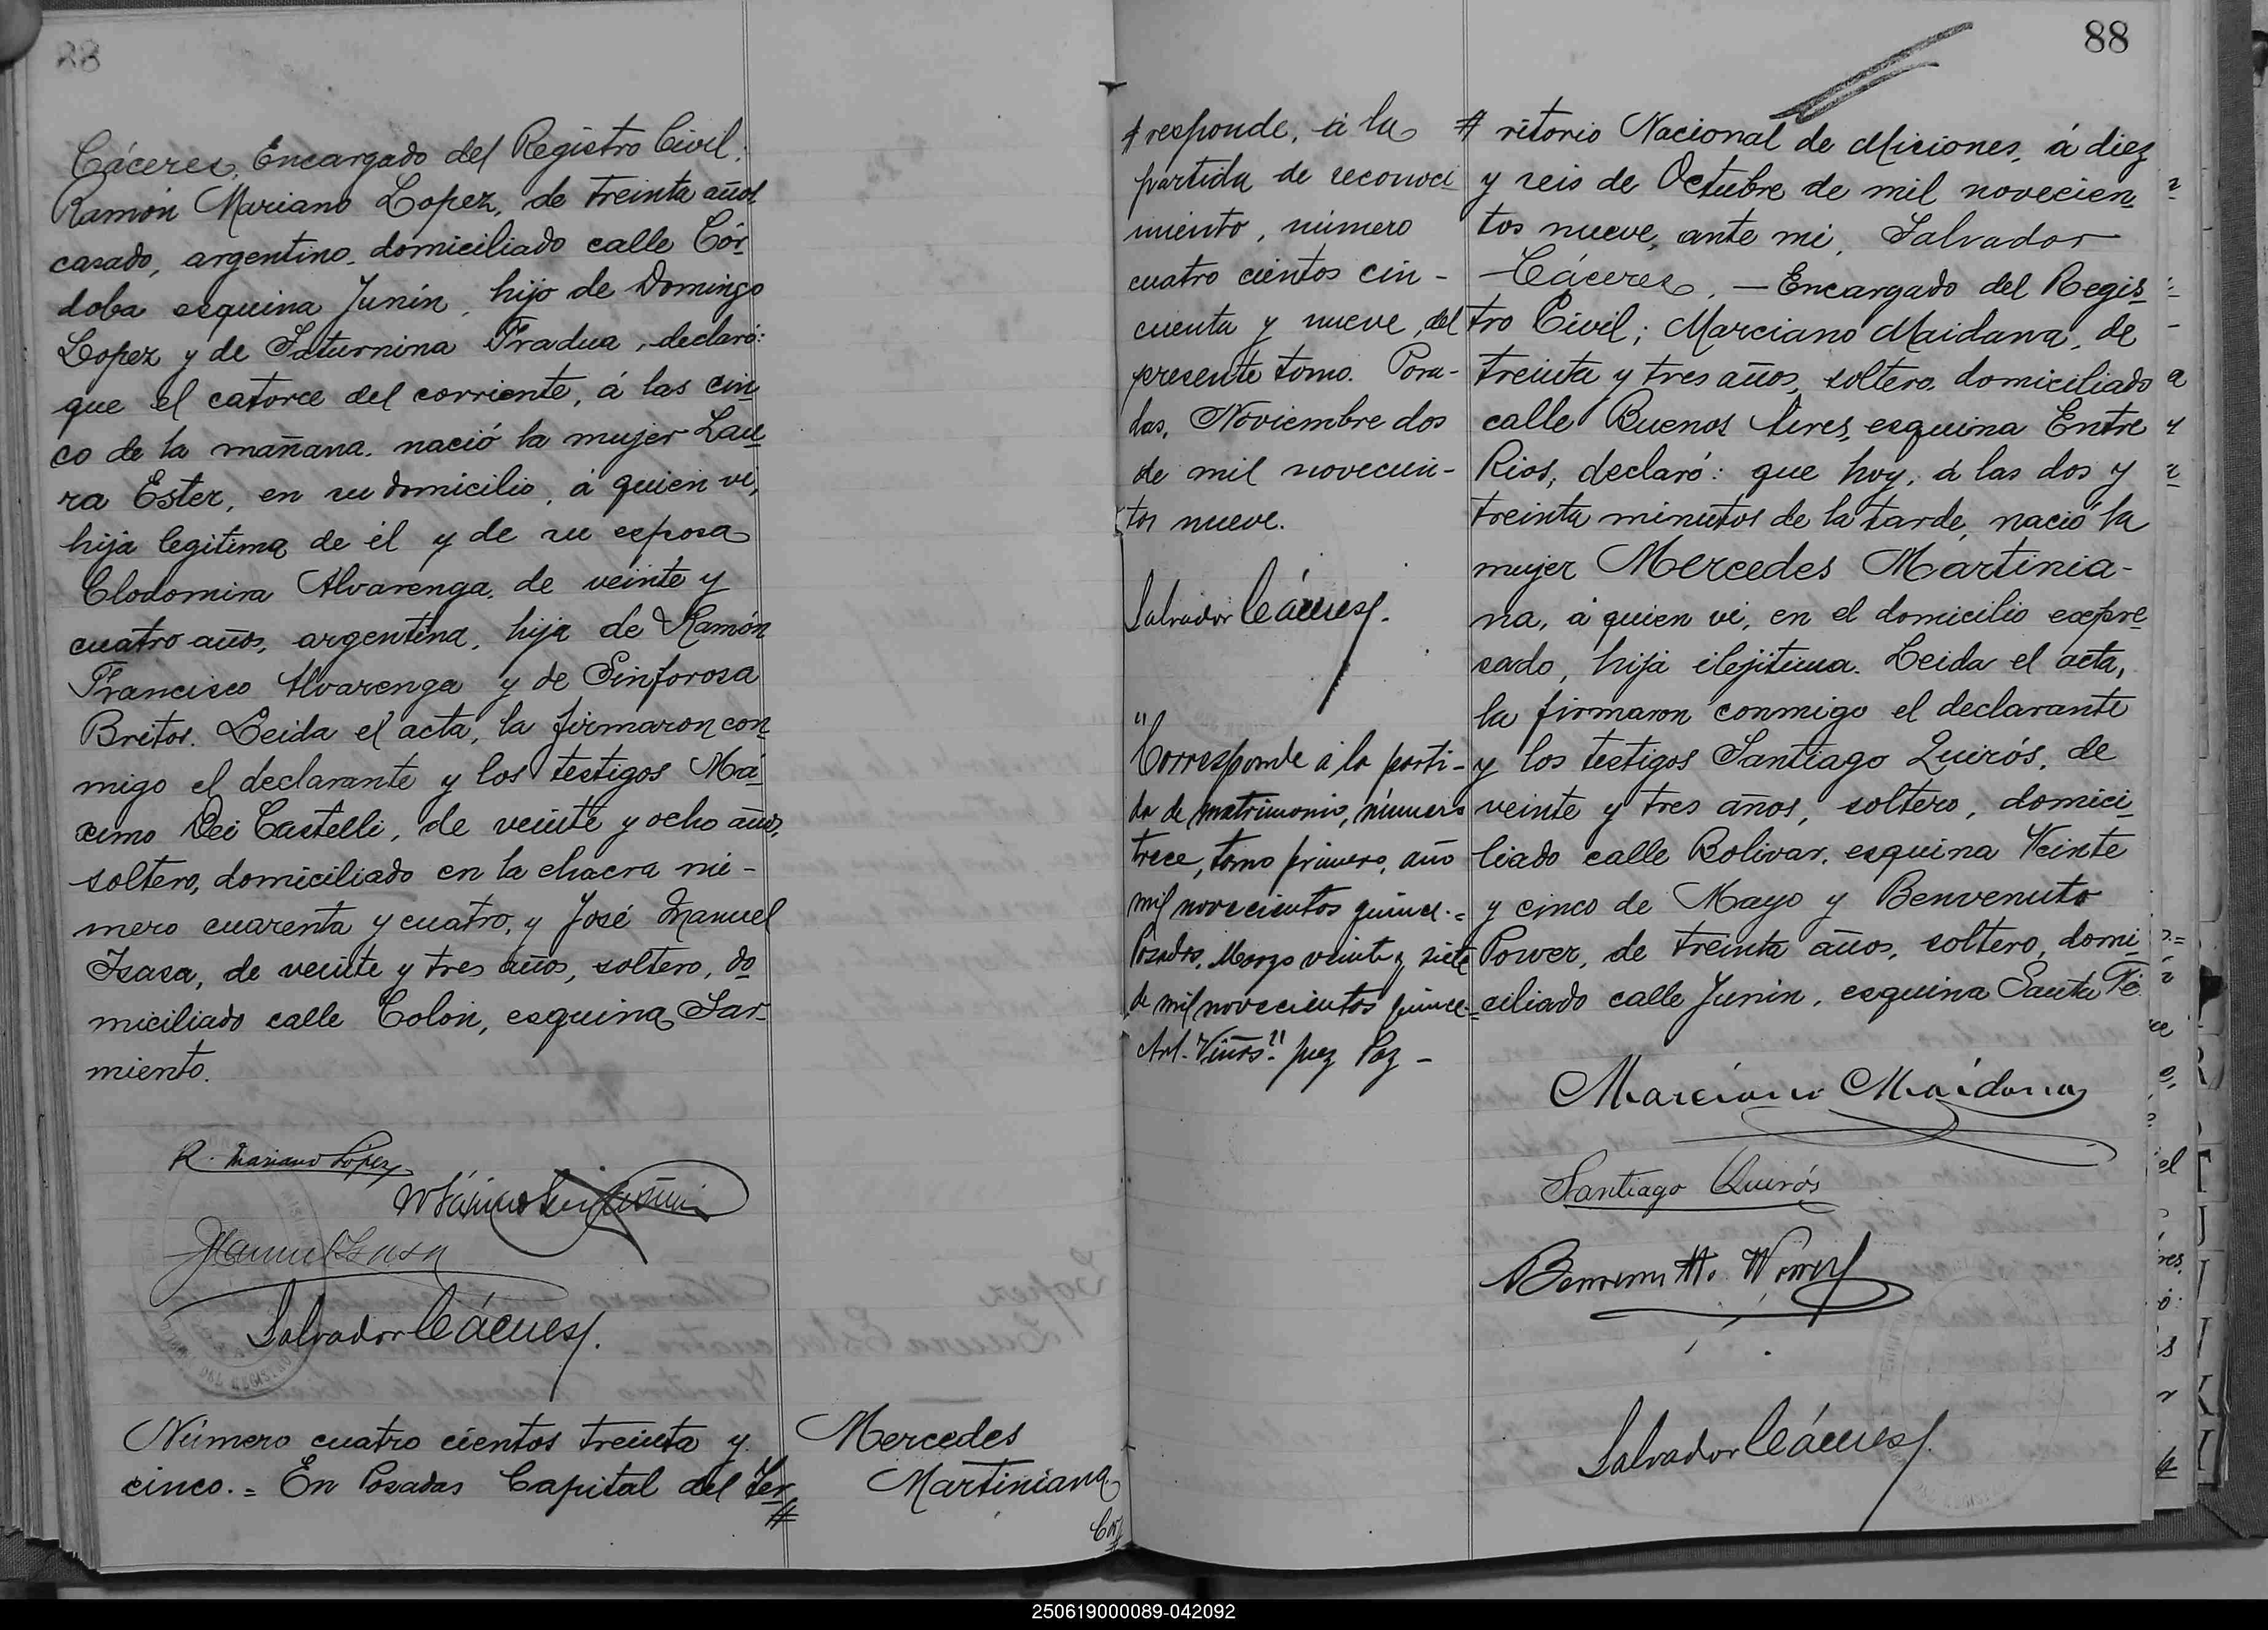 88
Cáceres, Encargado del Registro Civil;
Ramón Mariano Lopez, de treinta años,
casado, argentino, domiciliado calle Cór-
doba esquina Junín, hijo de Domingo
Lopez y de Saturnina Fradua, declaró:
que el catorce del corriente, á las cin-
co de la mañana, nació la mujer Lau-
ra Ester, en su domicilio, á quien vi,
hija legitima de él y de su esposa
Clodomira Alvarenga, de veinte y
cuatro años, argentina, hija de Ramón
Francisco Alvarenga y de Sinforosa
Britos. Leida el acta, la firmaron con-
migo el declarante y los testigos Má-
ximo Dei Castelli, de veinte y ocho años,
soltero, domiciliado en la chacra nú-
mero cuarenta y cuatro, y José Manuel
Isasa, de veinte y tres años, soltero, do-
miciliado calle Colón, esquina Sar-
miento.
R. Mariano López
Salvador Cáceres.
Número cuatro cientos treinta y
cinco. = En Posadas Capital del Ter-
#
Mercedes
Martiniana
Cor
#
# responde, á la
partida de reconoci-
miento, número
cuatro cientos cin-
cuenta y nueve del
presente tomo. Posa-
das, Noviembre dos
de mil novecien-
tos nueve.
Salvador Cáceres.
"
Corresponde á la parti-
da de matrimonio, número
trece, tomo primero, año
mil novecientos quince. =
Posadas, Marzo veinte y siete
de mil novecientos quince =
Art. Viñas" juez Paz -
88
# ritorio Nacional de Misiones, á diez
y seis de Octubre de mil novecien-
tos nueve, ante mi, Salvador
Cáceres, — Encargado del Regis-
tro Civil; Marciano Maidana, de
treinta y tres años, soltero, domiciliado
calle Buenos Aires, esquina Entre
Rios, declaró: que hoy, á las dos y
treinta minutos de la tarde, nació la
mujer Mercedes Martinia-
na, á quien vi, en el domicilio expre-
sado, hija ilejitima. Leida el acta,
la firmaron conmigo el declarante
y los testigos Santiago Quirós, de
veinte y tres años, soltero, domici-
liado calle Bolivar, esquina Veinte
y cinco de Mayo y Benvenuto
Power, de treinta años, soltero, domi-
ciliado calle Junín, esquina Santa Fé.
Marciano Maidana
Santiago Quirós
Benvenutto Power
Salvador Cáceres.
250619000089-042092